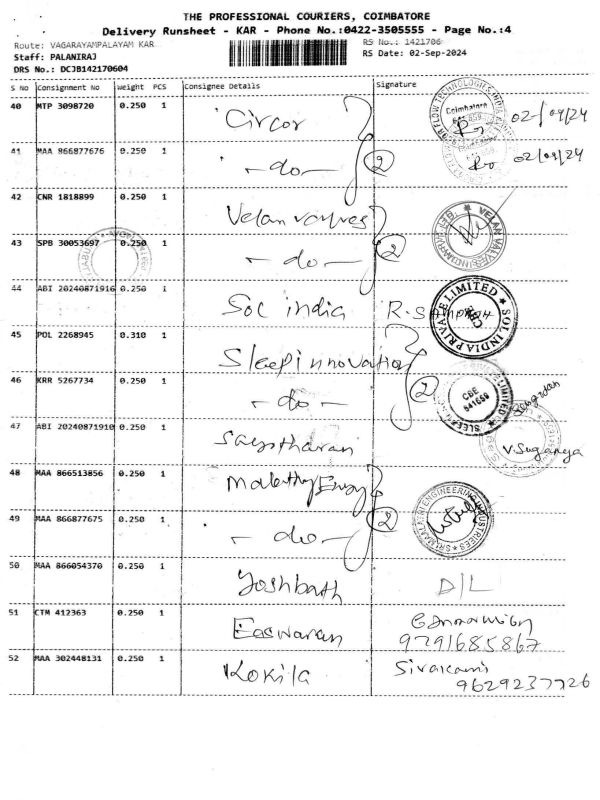 THE PROFESSIONAL COURIERS, COIMBATORE
Delivery Runsheet - KAR - Phone No.:0422-3505555 - Page No.:4
Route: VAGARAYAMPALAYAM KAR
RS No.: 1421706
Staff: PALANIRAJ
RS Date: 02-Sep-2024
DRS No.: DCJB142170604
S No Consignment No Weight PCS Consignee Details Signature
40 MTP 3098720 0.250 1 Circor Coimbatore 02/09/24
41 MAA 866877676 0.250 1 - do - 2 02/09/24
42 CNR 1818899 0.250 1 Velan valves VELAN VALVES INDIA PVT. LTD.
43 SPB 30053697 0.250 1 - do - 2
44 ABI 20240871916 0.250 1 Sol india R. SOL INDIA PRIVATE LIMITED
45 POL 2268945 0.310 1 Sleep innovation
46 KRR 5267734 0.250 1 - do - 2 CBE 641659 LIMITED
47 ABI 20240871910 0.250 1 V. Suganya
48 MAA 866513856 0.250 1 ENGINEERING INDUSTRIES
49 MAA 866877675 0.250 1 - do - 2
50 MAA 866054370 0.250 1 Yoshbath D/L
51 CTM 412363 0.250 1 Easwaran
9791685867
52 MAA 302448131 0.250 1 Kokila Sivakami
9629237726